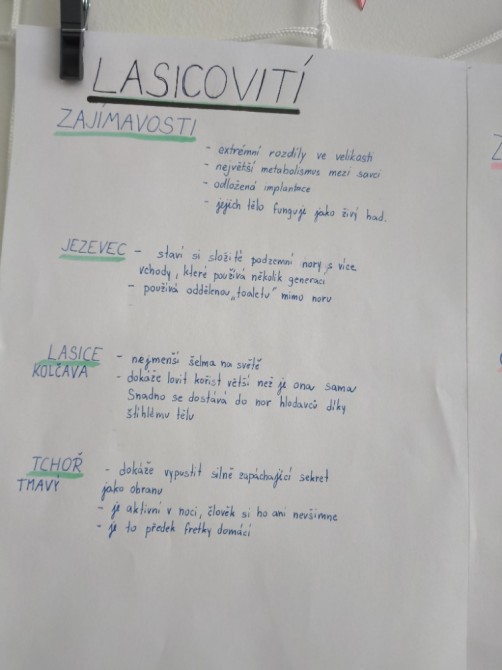 LASICOVITÍ
ZAJÍMAVOSTI
- extrémní rozdíly ve velikosti
- největší metabolismus mezi savci
- odložená implantace
- jejich tělo funguje jako živý had.
JEZEVEC - staví si složité podzemní nory s více
vchody, které používá několik generací
- používá oddělenou „toaletu" mimo noru
LASICE - nejmenší šelma na světě
KOLČAVA - dokáže lovit kořist větší než je ona sama
Snadno se dostává do nor hlodavců díky
štíhlému tělu
TCHOŘ - dokáže vypustit silně zapáchající sekret
TMAVÝ jako obranu
- je aktivní v noci, člověk si ho ani nevšimne
- je to předek fretky domácí